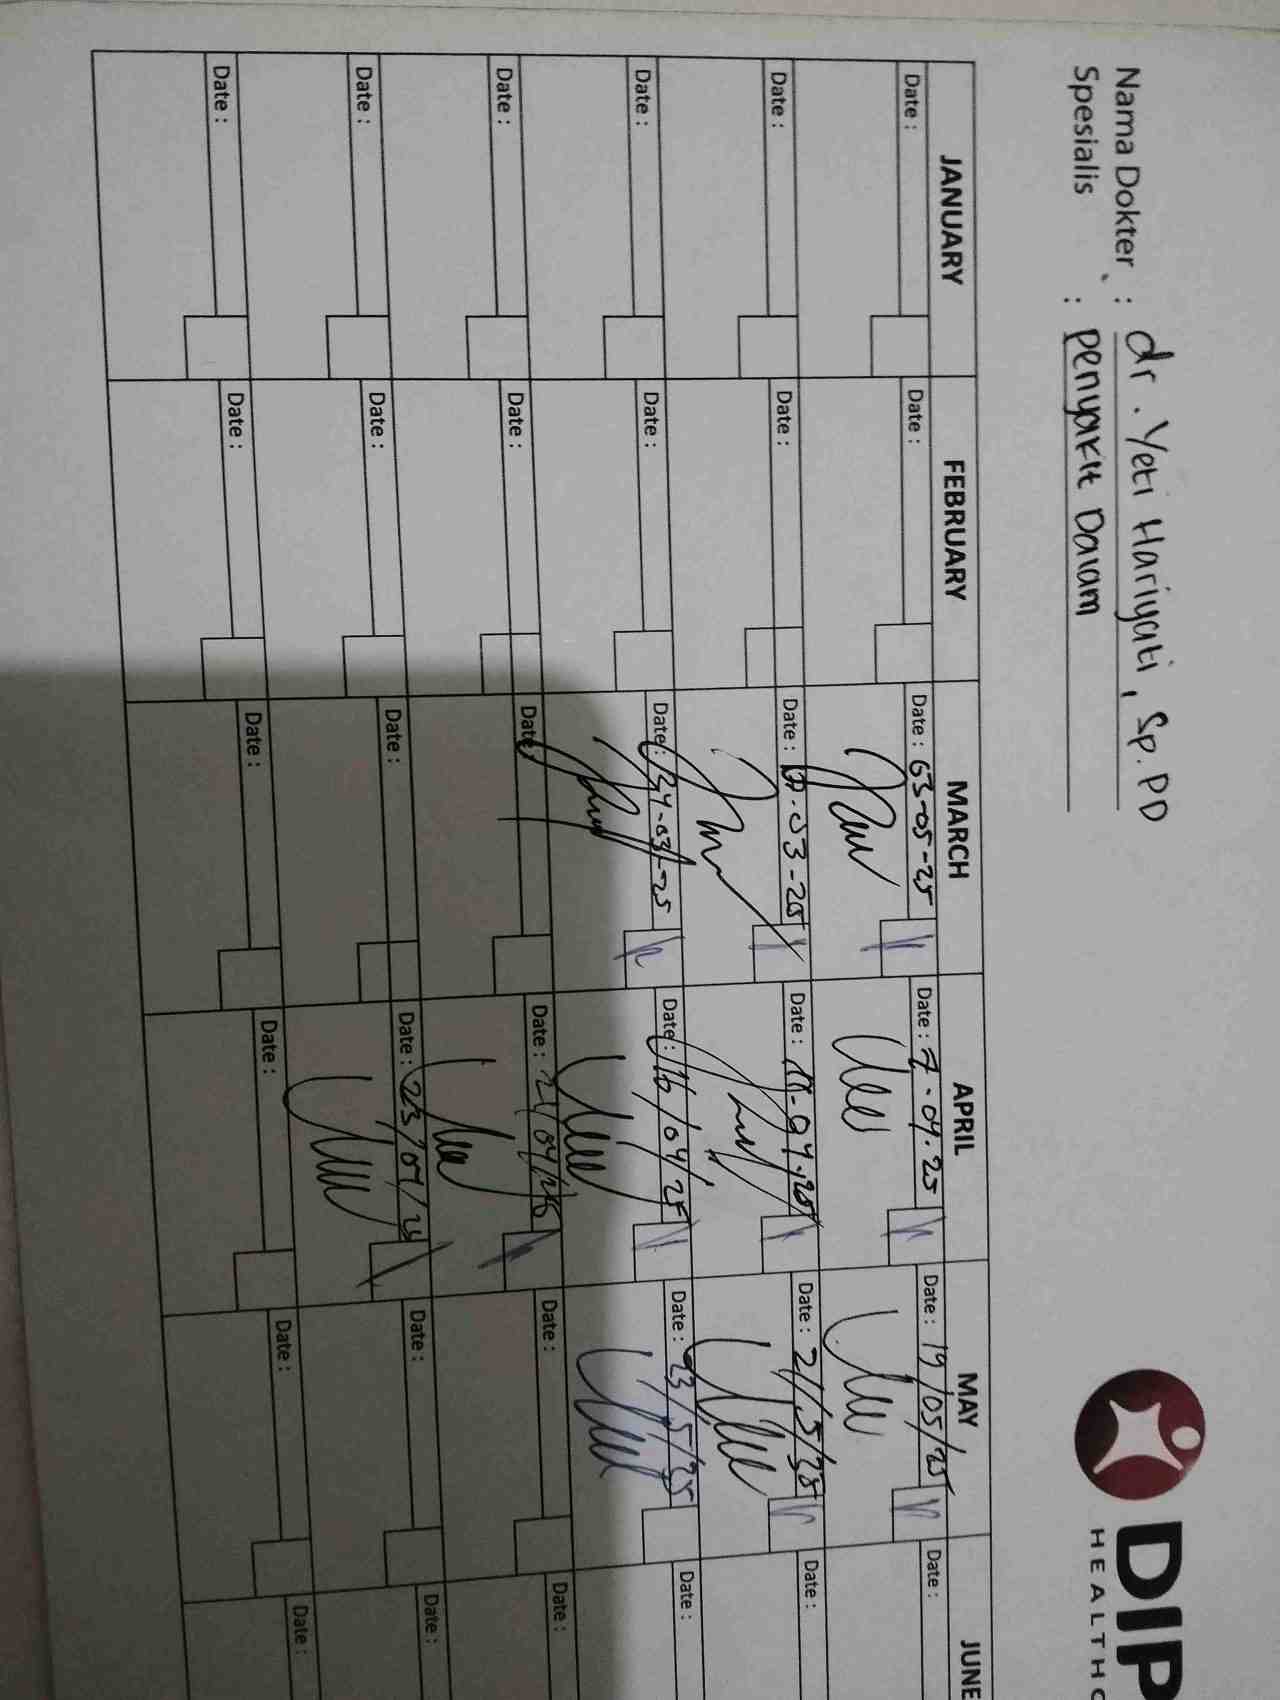 Nama Dokter : dr. Yeti Hariyati, Sp. PD
Spesialis : Penyakit Dalam
DIP
HEALTHC
JANUARY FEBRUARY MARCH APRIL MAY JUNE
Date : Date : Date : 03-05-25 Date : 7-04-25 Date : 19/05/25 Date :
Date : Date : Date : Date : Date : Date :
Date : Date : Date : 24-03-25 Date : 16/04/25 Date : 23/5/25 Date :
Date : Date : Date : Date : Date : Date :
Date : Date : Date : Date : Date : Date :
Date : Date : Date : Date : Date : Date :